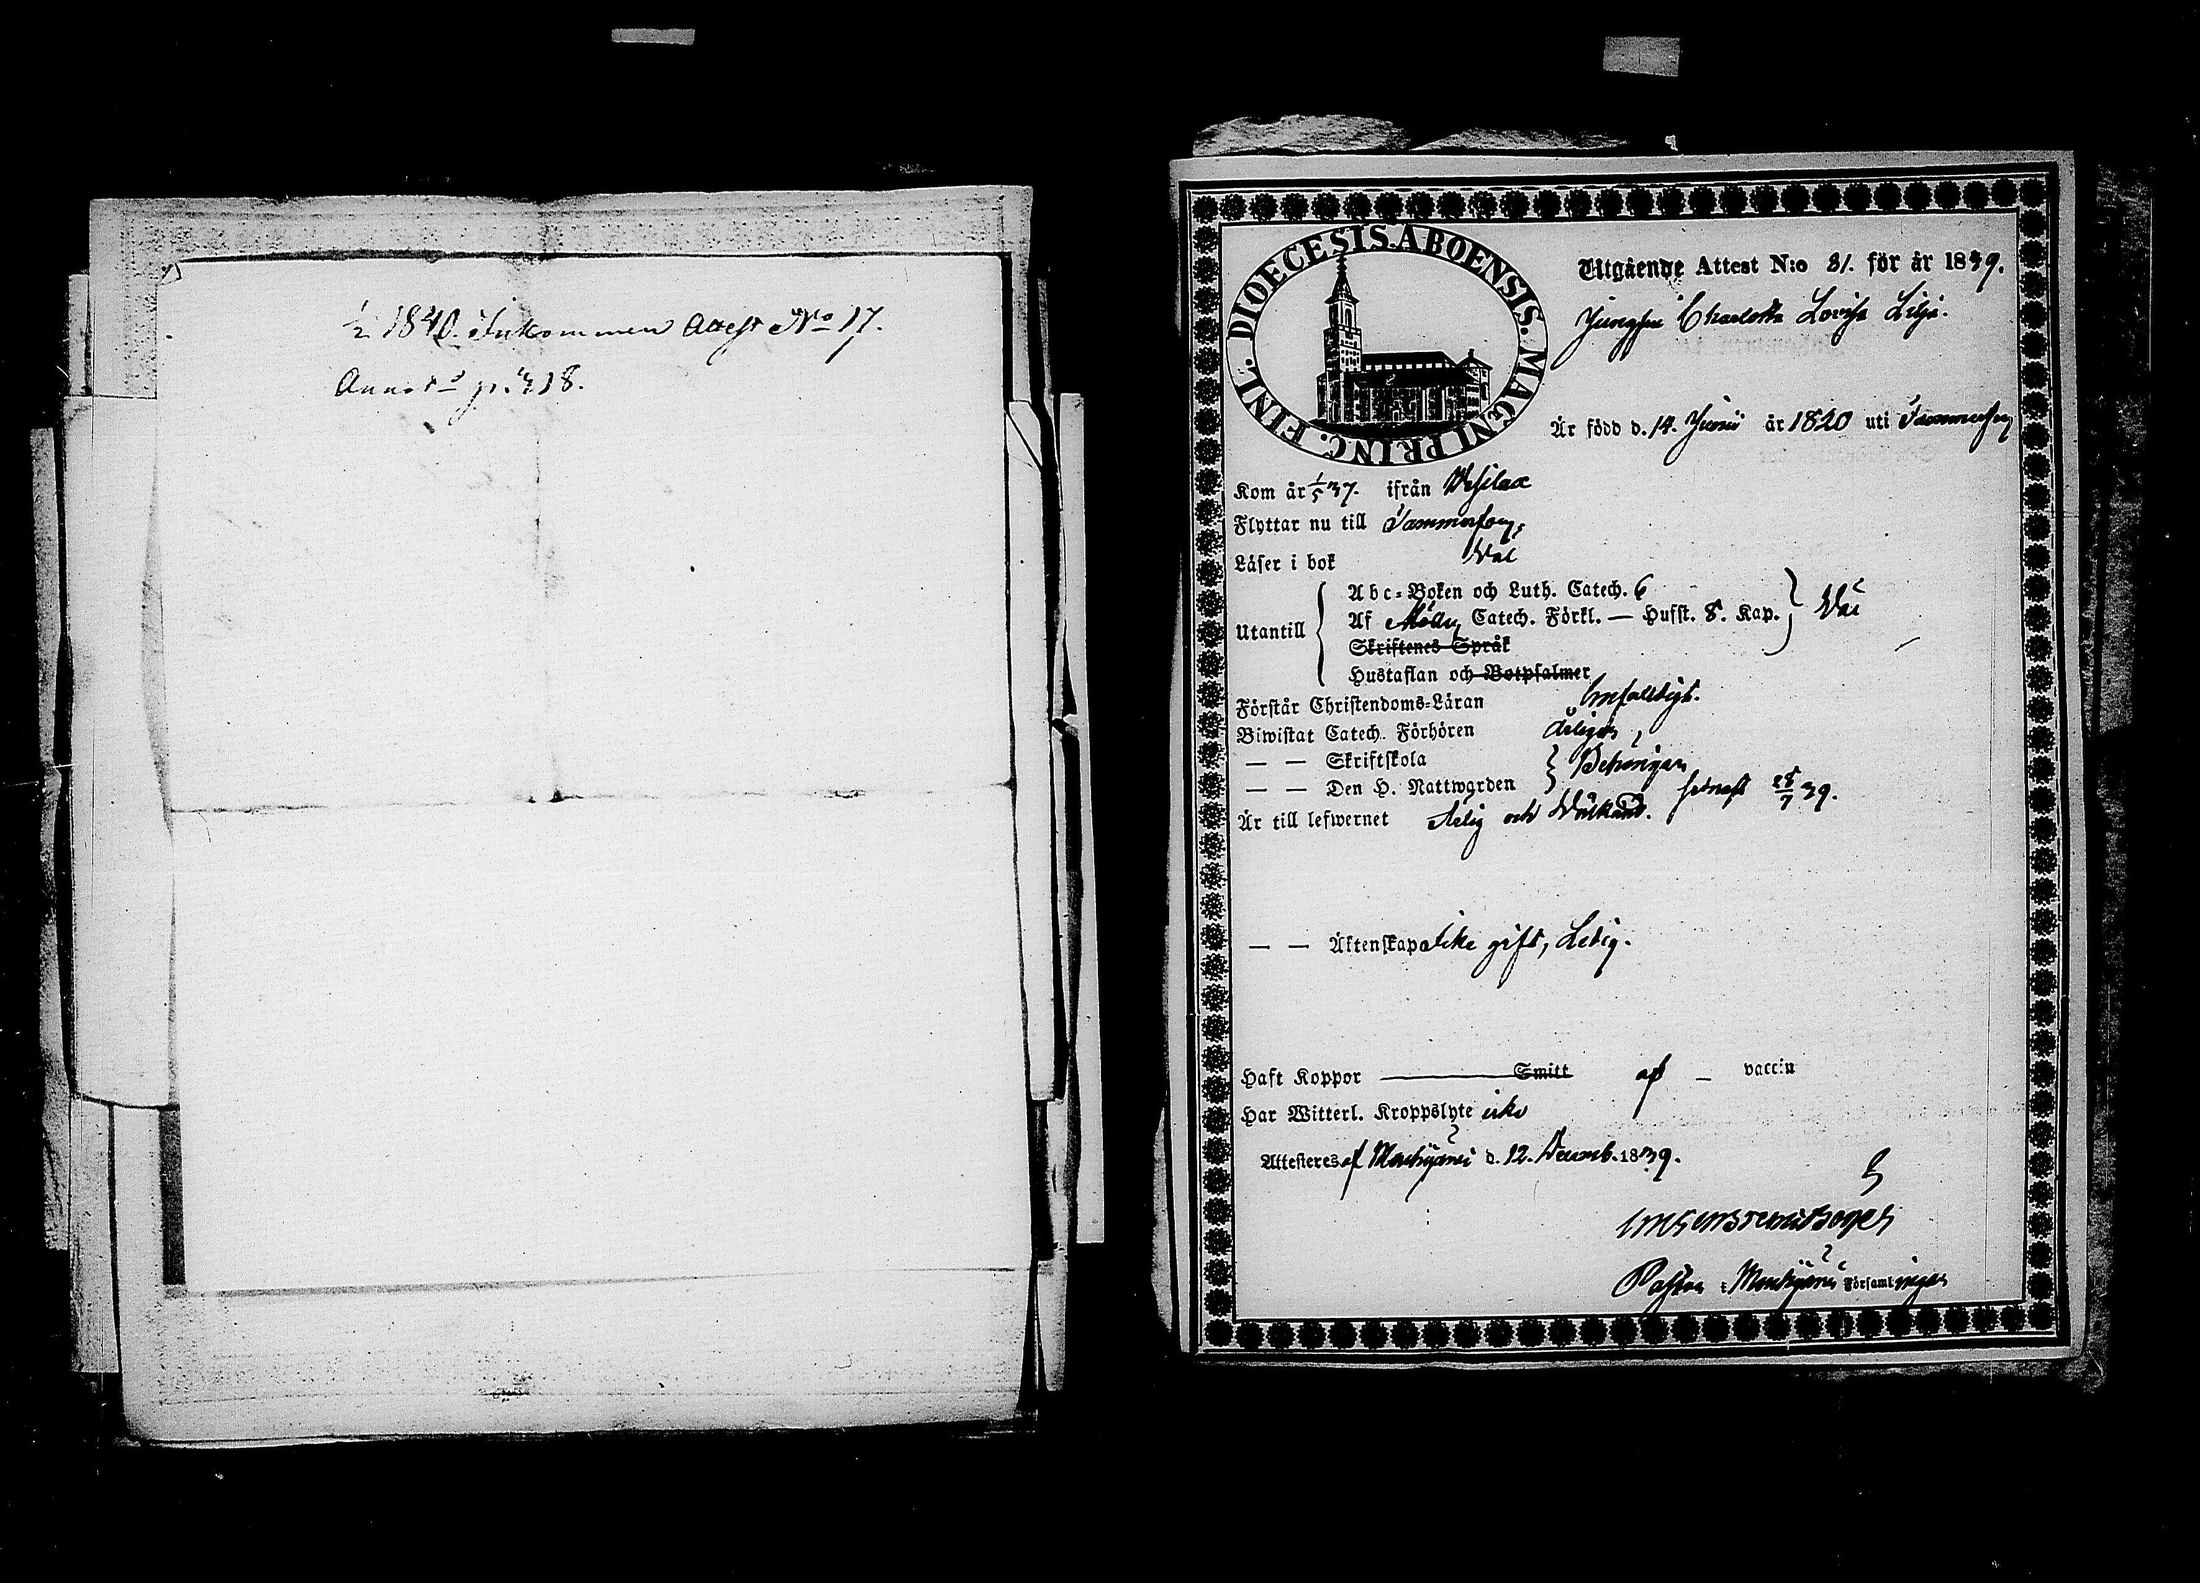 1/2 1840. Inkommen Attest No 17.
Annot. p. 318.
DIOECESIS ABOENSIS. MAGNI PRINC. FINL.
Utgående Attest N:o 81. för år 1839.
Jungfru Charlotta Lovisa Lilja.
Är född d. 14. Junii år 1820 uti Tammerfors
Kom år 1/5 37. ifrån Wesilax
Flyttar nu till Tammerfors,
Läser i bok Wäl
Utantill
Abc-Boken och Luth. Catech. 6
Af Catech. Förkl. — Hufst. 8. Kap. Wäl
Skriftenes Språk
Hustaflan och Botpsalmer
Förstår Christendoms-Läran Enfaldigt.
Biwistat Catech. Förhören årligen,
— — Skriftskola
— — Den H. Nattwarden Behörigen senast 28/7 39.
Är till lefwernet Ärlig och Wälkänd.
— — Äktenskap Icke gift, Ledig.
Haft Koppor Smitt af — vaccin
Har Witterl. Kroppslyte icke
Attesteras af Messukylä d. 12. Decemb. 1839.
Pastor i Församlingar